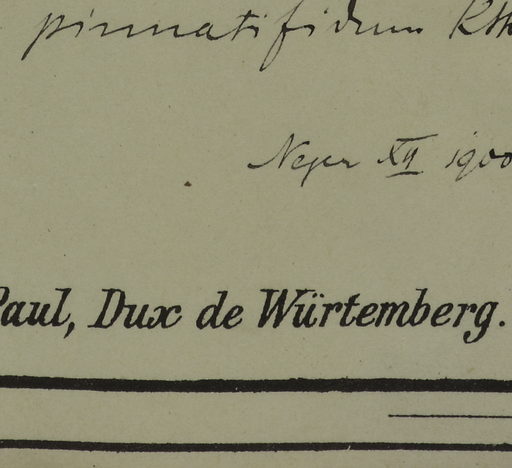 pinnatifidum Kth
Neger XII 1900
Paul, Dux de Würtemberg.